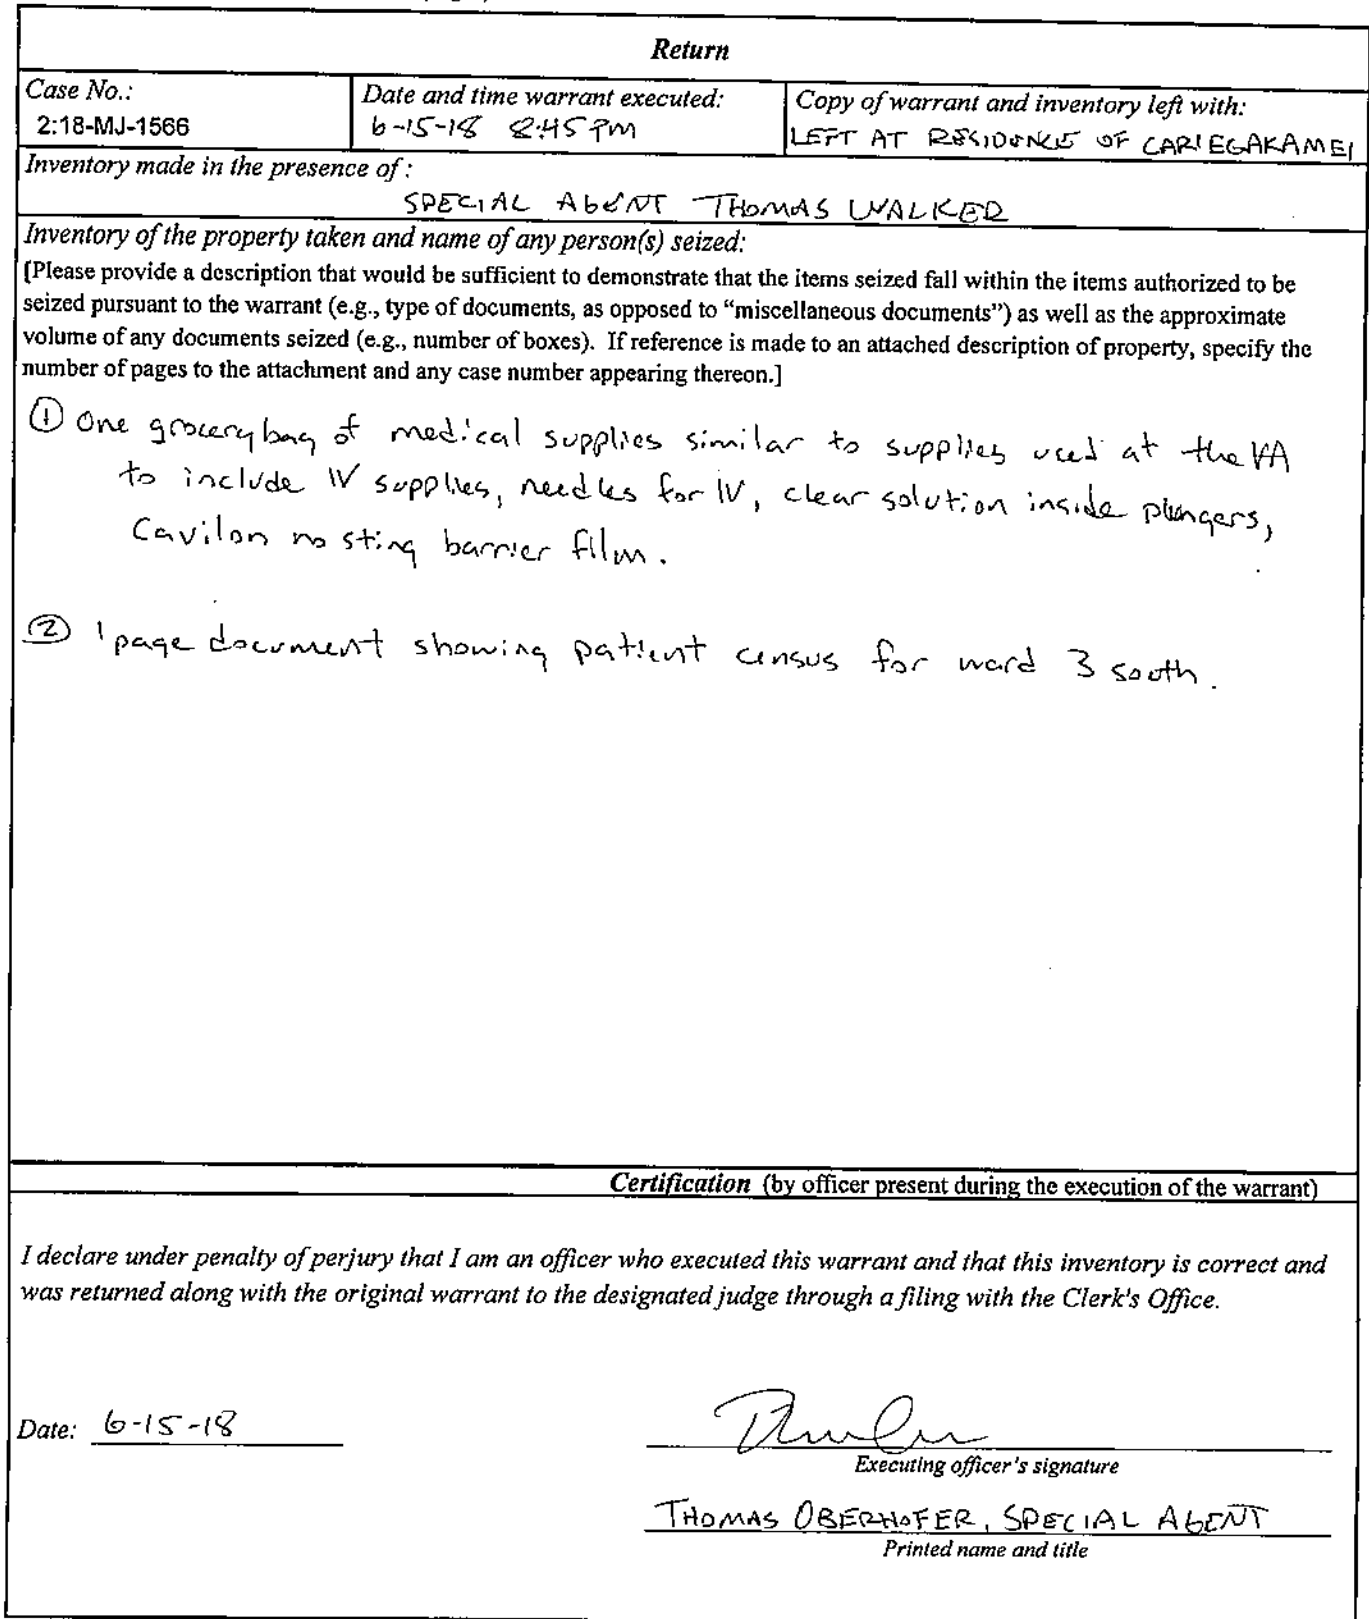 Return
Case No.:
2:18-MJ-1566
Date and time warrant executed:
6-15-18 8:45 PM
Copy of warrant and inventory left with:
LEFT AT RESIDENCE OF CARIEGAKAMEI
Inventory made in the presence of :
SPECIAL AGENT THOMAS WALKER
Inventory of the property taken and name of any person(s) seized:
[Please provide a description that would be sufficient to demonstrate that the items seized fall within the items authorized to be
seized pursuant to the warrant (e.g., type of documents, as opposed to “miscellaneous documents”) as well as the approximate
volume of any documents seized (e.g., number of boxes). If reference is made to an attached description of property, specify the
number of pages to the attachment and any case number appearing thereon.]
① One grocery bag of medical supplies similar to supplies used at the VA
to include IV supplies, needles for IV, clear solution inside plungers,
Cavilon no sting barrier film.
② 1 page document showing patient census for ward 3 south.
Certification (by officer present during the execution of the warrant)
I declare under penalty of perjury that I am an officer who executed this warrant and that this inventory is correct and
was returned along with the original warrant to the designated judge through a filing with the Clerk's Office.
Date: 6-15-18
Executing officer's signature
THOMAS OBERHOFER, SPECIAL AGENT
Printed name and title